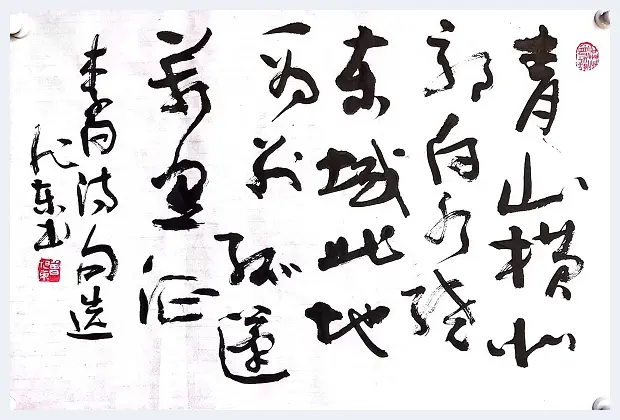 青山横北
郭白水绕
東城此地
一为别孤蓬
萬里征
李白诗句选
東书